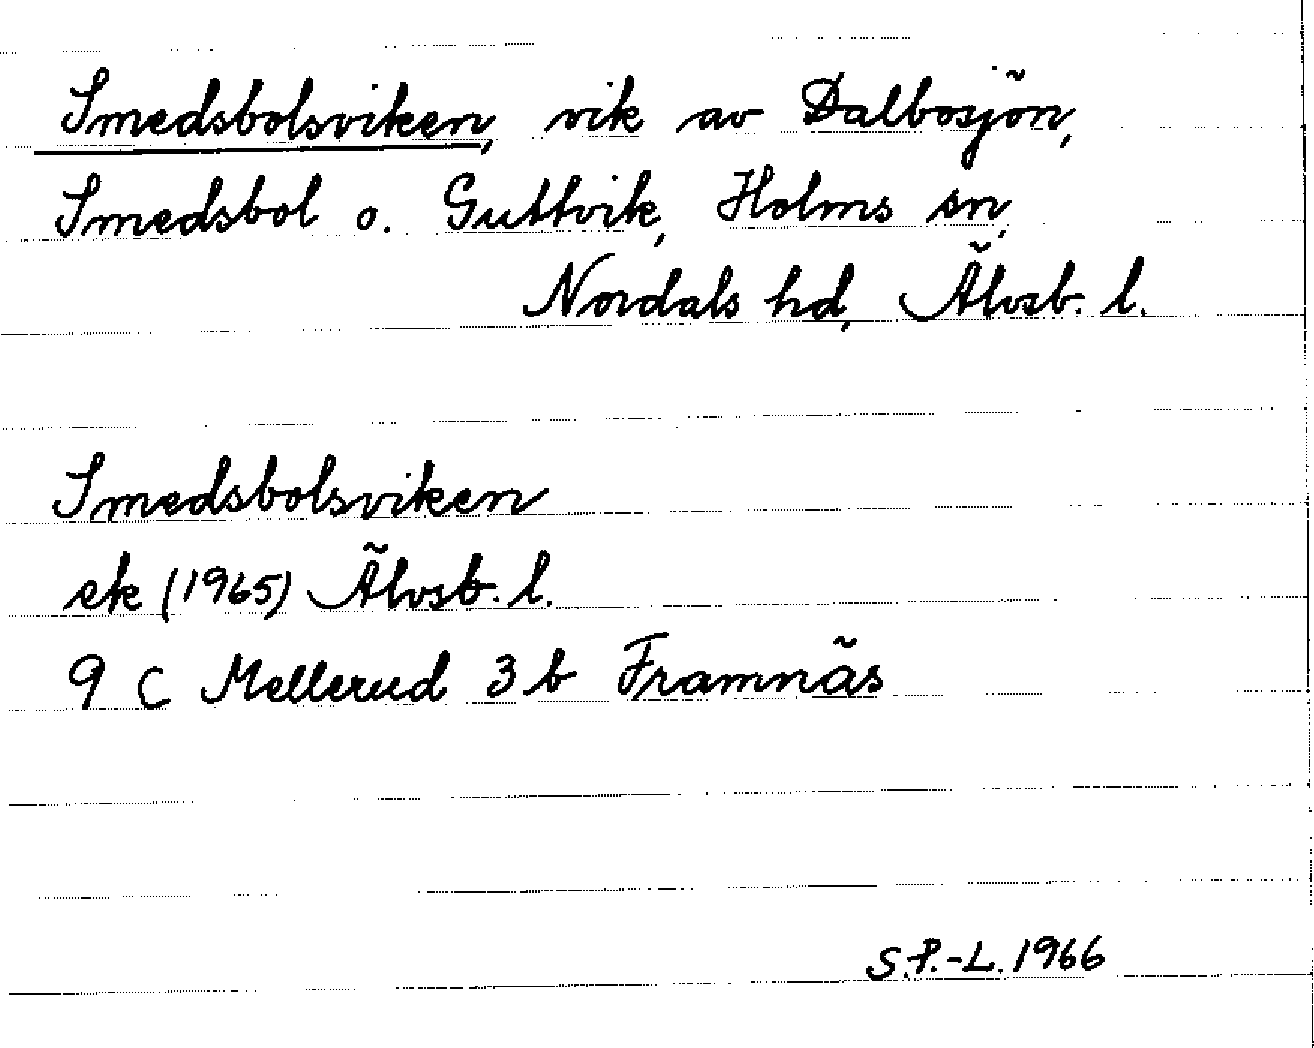 Smedsbolsviken, vik av Dalbosjön,
Smedsbol o. Guttvik, Holms sn,
Nordals hd, Älvsb. l.
Smedsbolsviken
ek (1965) Älvsb. l.
9 C Mellerud 3 b Framnäs
S.P.-L. 1966